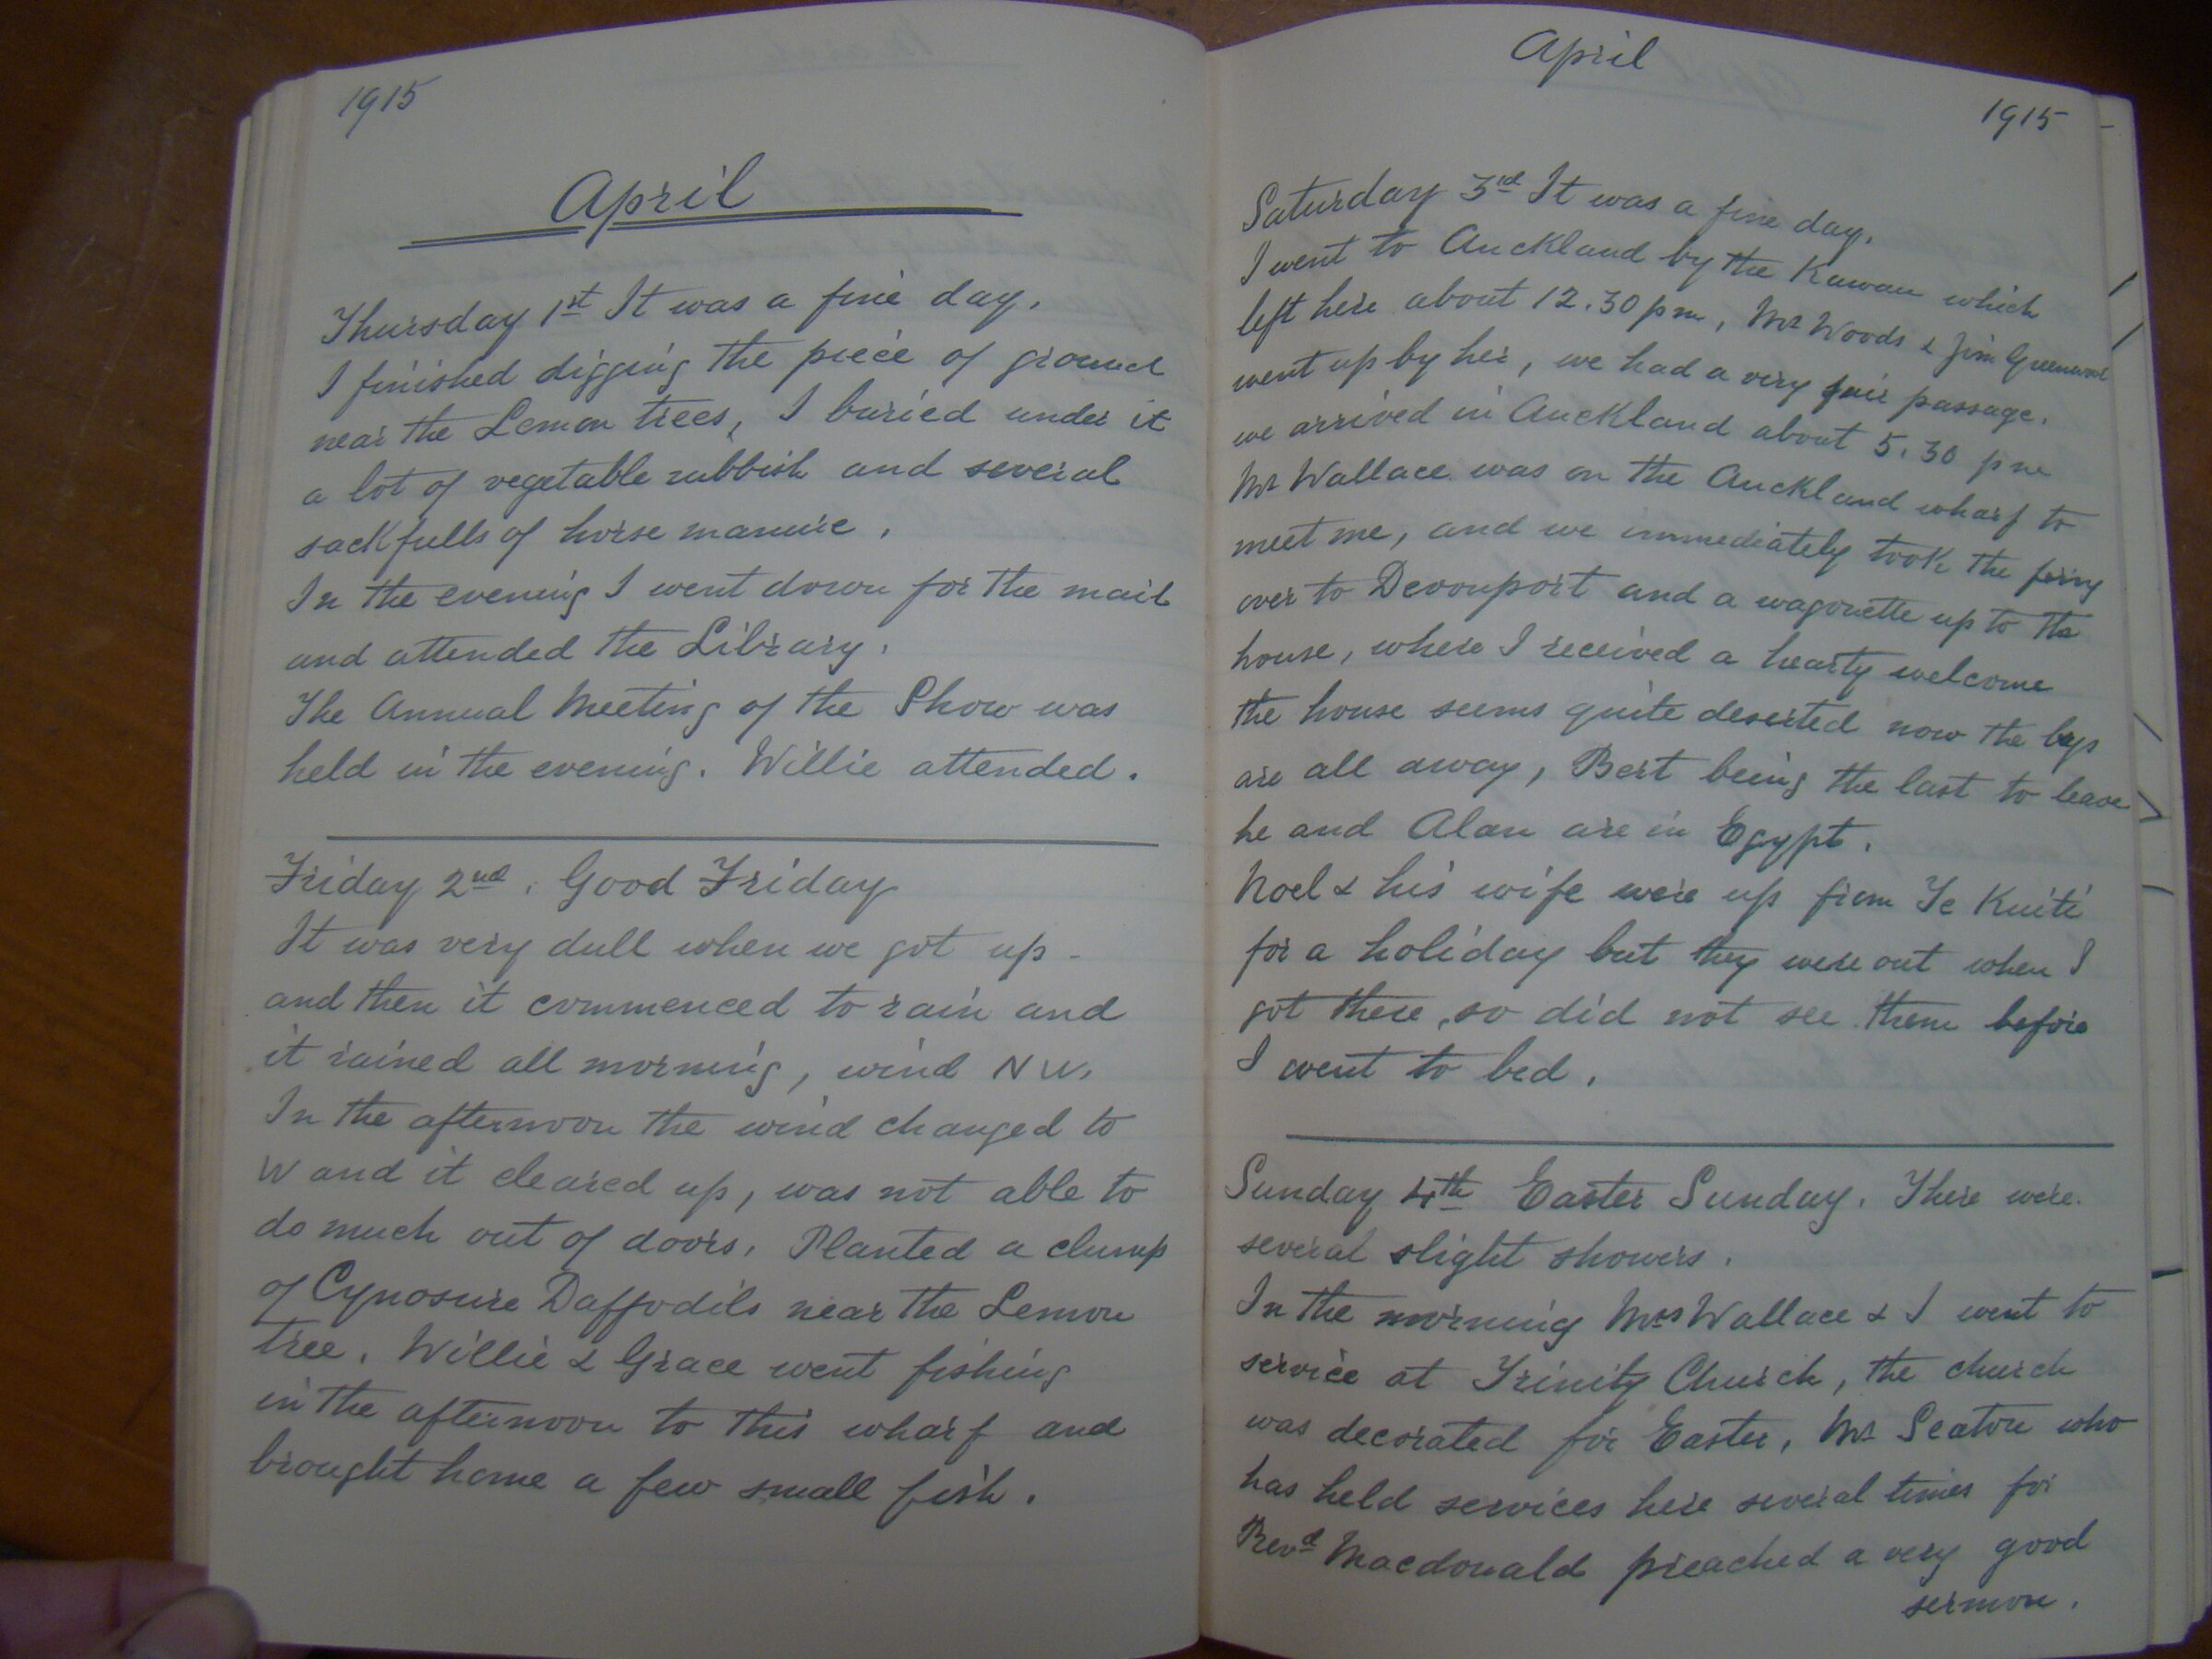 1915
April
Thursday 1st It was a fine day.
I finished digging the piece of ground
near the Lemon trees, I buried under it
a lot of vegetable rubbish and several
sackfulls of horse manure.
In the evening I went down for the mail
and attended the Library.
The Annual Meeting of the Show was
held in the evening. Willie attended.
Friday 2nd. Good Friday
It was very dull when we got up -
and then it commenced to rain and
it rained all morning, wind NW.
In the afternoon the wind changed to
W and it cleared up, was not able to
do much out of doors. Planted a clump
of Cynosure Daffodils near the Lemon
tree. Willie & Grace went fishing
in the afternoon to this wharf and
brought home a few small fish.
April
1915
Saturday 3rd It was a fine day.
I went to Auckland by the Kawau which
left here about 12.30 pm, Mr Woods & Jim Greenwood
went up by her, we had a very fair passage.
we arrived in Auckland about 5.30 pm
Mr Wallace was on the Auckland wharf to
meet me, and we immediately took the ferry
over to Devonport and a wagonette up to the
house, where I received a hearty welcome
the house seems quite deserted now the boys
are all away, Bert being the last to leave
he and Alan are in Egypt.
Noel & his wife were up from Te Kuiti
for a holiday but they were out when I
got there, so did not see them before
I went to bed.
Sunday 4th Easter Sunday. There were.
several slight showers.
In the morning Mrs Wallace & I went to
service at Trinity Church, the church
was decorated for Easter, Mr Seaton who
has held services here several times for
Revd Macdonald preached a very good
sermon.